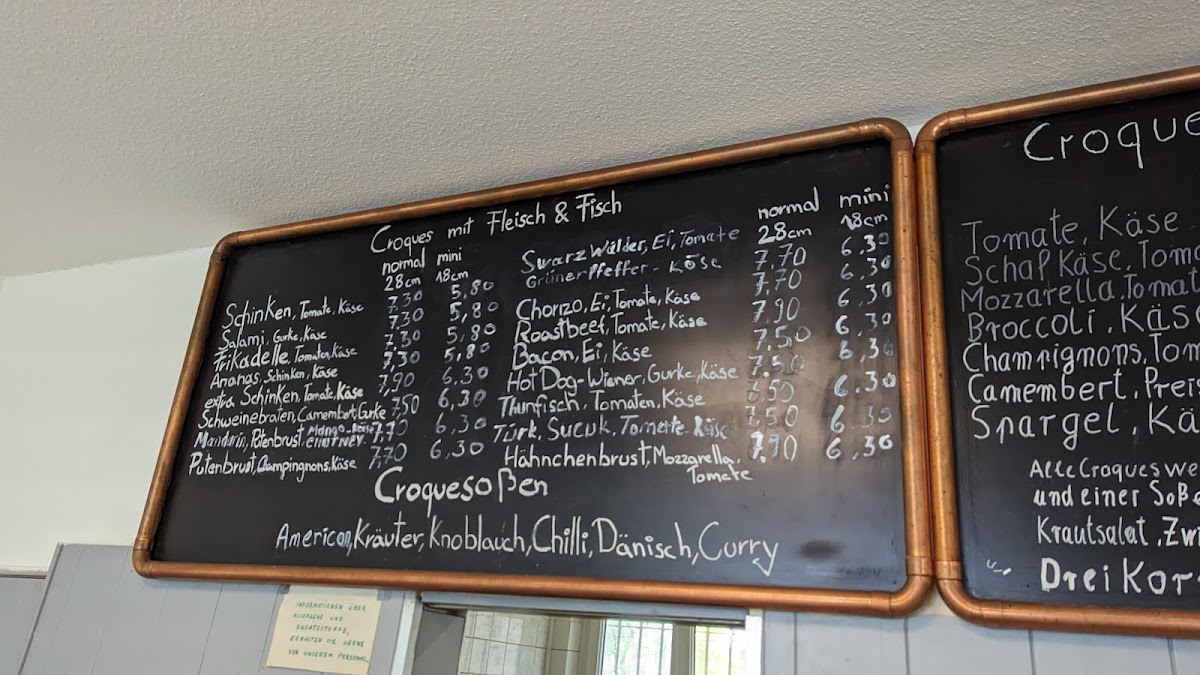 Croques mit Fleisch & Fisch
normal mini
28cm 18cm
Schinken, Tomate, Käse 7,30 5,80
Salami, Gurke, Käse 7,30 5,80
Frikadelle, Tomaten, Käse 7,30 5,80
Ananas, Schinken, Käse 7,30 5,80
extra Schinken, Tomate, Käse 7,90 6,30
Schweinebraten, Camembert, Gurke 7,50 6,30
Mandarin, Putenbrust, Mango-Käse CHUTNEY 7,70 6,30
Putenbrust, Champingnons, Käse 7,70 6,30
normal mini
28cm 18cm
Swarz Wälder, Ei, Tomate 7,70 6,30
Grüner Pfeffer - Käse 7,70 6,30
Chorizo, Ei, Tomate, Käse 7,90 6,30
Roastbeef, Tomate, Käse 7,50 6,30
Bacon, Ei, Käse 7,50 6,30
Hot Dog-Wiener, Gurke, Käse 6,30
Thunfisch, Tomaten, Käse 7,50 6,30
Türk. Sucuk, Tomate, Käse 6,30
Hähnchenbrust, Mozzarella, 7,90 6,30
Tomate
Croquesoßen
American, Kräuter, Knoblauch, Chilli, Dänisch, Curry
Croque
Tomate, Käse
Schafkäse, Toma
Mozzarella, Tomat
Broccoli, Käse
Champignons, Tom
Camembert, Prei
Spargel, Kä
Alle Croques we
und einer Soße
Krautsalat, Zwi
Drei Kor
INFORMATIONEN ÜBER
ALLERGENE UND
ZUSATZSTOFFE,
ERHALTEN SIE GERNE
VON UNSEREM PERSONAL